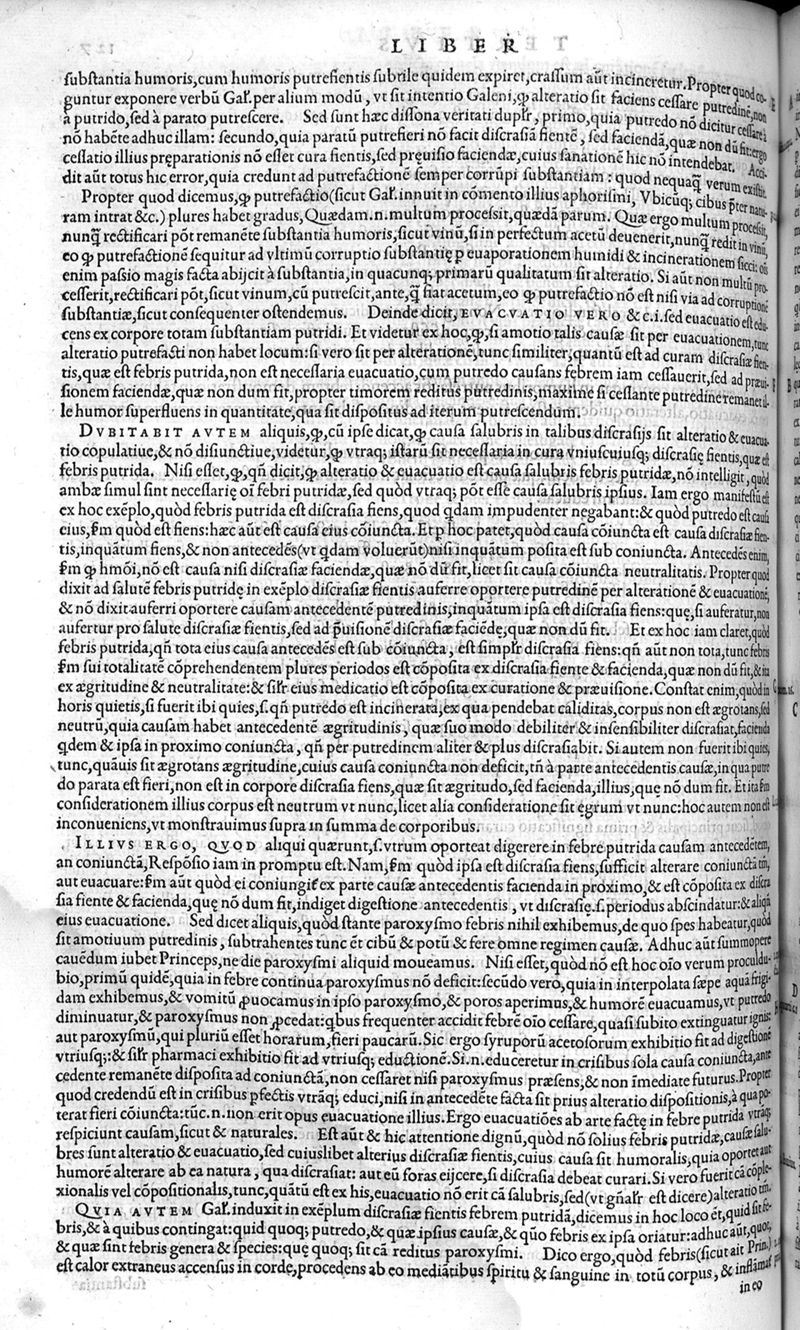 LIBER
substantia humoris, cum humoris putrefientis subtile quidem expiret, crassum aũt incineretur. Propter quod co-
guntur exponere verbũ Gal̃. per alium modũ, vt sit intentio Galeni, ꝙ alteratio sit faciens cessare putredinẽ, non
à putrido, sed à parato putrescere. Sed sunt hæc dissona veritati duplr̃, primo, quia putredo nõ dicitur cessare à
nõ habẽte adhuc illam: secundo, quia paratũ putrefieri nõ facit discrasiã fientẽ, sed faciendã, quæ non dũ fit: ergo
cessatio illius pręparationis nõ esset cura fientis, sed pręuisio faciendæ, cuius sanationẽ hic nõ intendebat. Acci-
dit aũt totus hic error, quia credunt ad putrefactionẽ semper corrũpi substantiam: quod nequaq̃ verum existit.
Propter quod dicemus, ꝙ putrefactio (sicut Gal̃. innuit in cõmento illius aphorismi, Vbicũq; cibus ꝑter natu-
ram intrat &c.) plures habet gradus, Quædam .n. multum processit, quædã parum. Quæ ergo multum processit,
nunq̃ rectificari põt remanẽte substantia humoris, sicut vinũ, si in perfectum acetũ deuenerit, nunq̃ redit in vinũ,
eo ꝙ putrefactionẽ sequitur ad vltimũ corruptio substantię ꝑ euaporationem humidi & incinerationem sicci: ois
enim passio magis facta abijcit à substantia, in quacunq; primarũ qualitatum sit alteratio. Si aũt non multũ pro-
cesserit, rectificari põt, sicut vinum, cũ putrescit, ante, q̃ fiat acetum, eo ꝙ putrefactio nõ est nisi via ad corruptionẽ
substantiæ, sicut consequenter ostendemus. Deinde dicit, EVACVATIO VERO & c.i. sed euacuatio est edu-
cens ex corpore totam substantiam putridi. Et videtur ex hoc, ꝙ, si amotio talis causæ sit per euacuationem, tunc
alteratio putrefacti non habet locum: si vero sit per alterationẽ, tunc similiter, quantũ est ad curam discrasiæ fien-
tis, quæ est febris putrida, non est necessaria euacuatio, cum putredo causans febrem iam cessauerit, sed ad præui-
sionem faciendæ, quæ non dum fit, propter timorem reditus putredinis, maxime si cessante putredine remanet il-
le humor superfluens in quantitate, qua sit dispositus ad iterum putrescendum.
DVBITABIT AVTEM aliquis, ꝙ, cũ ipse dicat, ꝙ causa salubris in talibus discrasijs sit alteratio & euacua-
tio copulatiue, & nõ disiunctiue, videtur, ꝙ vtraq; istarũ sit necessaria in cura vniuscuiusq; discrasię fientis, quæ est
febris putrida. Nisi esset, ꝙ, qñ dicit, ꝙ alteratio & euacuatio est causa salubris febris putridæ, nõ intelligit, quòd
ambæ simul sint necessarię oĩ febri putridæ, sed quòd vtraq; põt esse causa salubris ipsius. Iam ergo manifestũ est
ex hoc exẽplo, quòd febris putrida est discrasia fiens, quod qdam impudenter negabant: & quòd putredo est causa
eius, ẜm quòd est fiens: hæc aũt est causa eius cõiuncta. Et ꝑ hoc patet, quòd causa cõiuncta est causa discrasiæ fien-
tis, inquãtum fiens, & non antecedẽs (vt qdam voluerũt) nisi inquãtum posita est sub coniuncta. Antecedẽs enim,
ẜm ꝙ hmõi, nõ est causa nisi discrasiæ faciendæ, quæ nõ dũ fit, licet sit causa cõiuncta neutralitatis. Propter quod
dixit ad salutẽ febris putridę in exẽplo discrasiæ fientis auferre oportere putredinẽ per alterationẽ & euacuationẽ,
& nõ dixit auferri oportere causam antecedentẽ putredinis, inquãtum ipsa est discrasia fiens: quę, si auferatur, non
aufertur pro salute discrasiæ fientis, sed ad p̃uisionẽ discrasiæ faciẽdę, quæ non dũ fit. Et ex hoc iam claret, quòd
febris putrida, qñ tota eius causa antecedẽs est sub cõiuncta, est simplr̃ discrasia fiens: qñ aũt non tota, tunc febris
ẜm sui totalitatẽ cõprehendentem plures periodos est cõposita ex discrasia fiente & facienda, quæ non dũ fit, & ita
ex ægritudine & neutralitate: & silr̃ eius medicatio est cõposita ex curatione & præuisione. Constat enim, quòd in
horis quietis, si fuerit ibi quies, s. qñ putredo est incinerata, ex qua pendebat caliditas, corpus non est ægrotans, sed
neutrũ, quia causam habet antecedentẽ ægritudinis, quæ suo modo debiliter & insensibiliter discrasiat, facienda
qdem & ipsa in proximo coniuncta, qñ per putredinem aliter & plus discrasiabit. Si autem non fuerit ibi quies,
tunc, quãuis sit ægrotans ægritudine, cuius causa coniuncta non deficit, tñ à parte antecedentis causæ, in qua putre
do parata est fieri, non est in corpore discrasia fiens, quæ sit ægritudo, sed facienda, illius, quę nõ dum fit. Et ita ẜm
considerationem illius corpus est neutrum vt nunc, licet alia consideratione sit ęgrum vt nunc: hoc autem non est
inconueniens, vt monstrauimus supra in summa de corporibus.
ILLIVS ERGO, QVOD aliqui quærunt, s. vtrum oporteat digerere in febre putrida causam antecedẽtem,
an coniunctã, Respõsio iam in promptu est. Nam, ẜm quòd ipsa est discrasia fiens, sufficit alterare coniunctã tm̃,
aut euacuare: ẜm aũt quòd ei coniungit̃ ex parte causæ antecedentis facienda in próximo, & est cõposita ex discra
sia fiente & facienda, quę nõ dum fit, indiget digestione antecedentis, vt discrasię .s. periodus abscindatur: & aliq̃
eius euacuatione. Sed dicet aliquis, quòd stante paroxysmo febris nihil exhibemus, de quo spes habeatur, quòd
sit amotiuum putredinis, subtrahentes tunc ẽt cibũ & potũ & fere omne regimen causæ. Adhuc aũt summopere
cauẽdum iubet Princeps, ne die paroxysmi aliquid moueamus. Nisi esset, quòd nõ est hoc oĩo verum proculdu-
bio, primũ quidẽ, quia in febre continua paroxysmus nõ deficit: secũdò vero, quia in interpolata sæpe aquã frigi-
dam exhibemus, & vomitũ ꝓuocamus in ipso paroxysmo, & poros aperimus, & humorẽ euacuamus, vt putredo
diminuatur, & paroxysmus non ꝓcedat: qbus frequenter accidit febrẽ oĩo cessare, quasi subito extinguatur ignis:
aut paroxysmũ, qui pluriũ esset horarum, fieri paucarũ. Sic ergo syruporũ acetosorum exhibitio fit ad digestionẽ
vtriusq;: & silr̃ pharmaci exhibitio fit ad vtriusq; eductionẽ. Si .n. educeretur in crisibus sola causa coniuncta, ante
cedente remanẽte disposita ad coniunctã, non cessaret nisi paroxysmus præsens, & non ĩmediate futurus. Propter
quod credendũ est in crisibus ꝑfectis vtrãq; educi, nisi in antecedẽte facta sit prius alteratio dispositionis, à qua po-
terat fieri cõiuncta: tũc .n. non erit opus euacuatione illius. Ergo euacuatiões ab arte factę in febre putrida vtrãq;
respiciunt causam, sicut & naturales. Est aũt & hic attentione dignũ, quòd nõ solius febris putridæ, causæ salu-
bres sunt alteratio & euacuatio, sed cuiuslibet alterius discrasiæ fientis, cuius causa sit humoralis, quia oportet aut
humorẽ alterare ab ea natura, qua discrasiat: aut eũ foras eijcere, si discrasia debeat curari. Si vero fuerit cã cõple-
xionalis vel cõpositionalis, tunc, quãtũ est ex his, euacuatio nõ erit cã salubris, sed (vt gñalr̃ est dicere) alteratio tm̃.
QVIA AVTEM Gal̃. induxit in exẽplum discrasiæ fientis febrem putridã, dicemus in hoc loco ẽt, quid sit fe-
bris, & à quibus contingat: quid quoq; putredo, & quæ ipsius causæ, & quõ febris ex ipsa oriatur: adhuc aũt, quot,
& quæ sint febris genera & species: quę quoq; sit cã reditus paroxysmi. Dico ergo, quòd febris (sicut ait Prin.)
est calor extraneus accensus in corde, procedens ab eo mediãtibus spiritu & sanguine in totũ corpus, & inflãmat
in eo